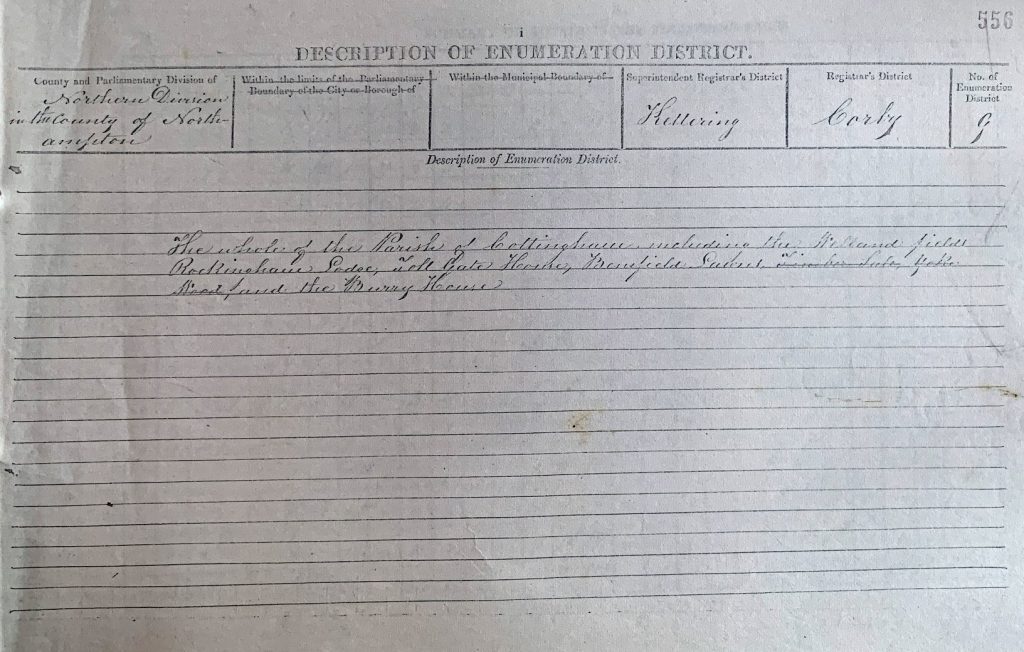 556
i
DESCRIPTION OF ENUMERATION DISTRICT.
County and Parliamentary Division of
Northern Division
in the County of North-
ampton
Within the limits of the Parliamentary
Boundary of the City or Borough of
Within the Municipal Boundary of
Superintendent Registrar's District
Kettering
Registrar's District
Corby
No. of
Enumeration
District
9
Description of Enumeration District.
The whole of the Parish of Cottingham including the Welland fields
Rockingham Lodge, Toll Gate House, Benefield Lawns,
Road, and the Burry House